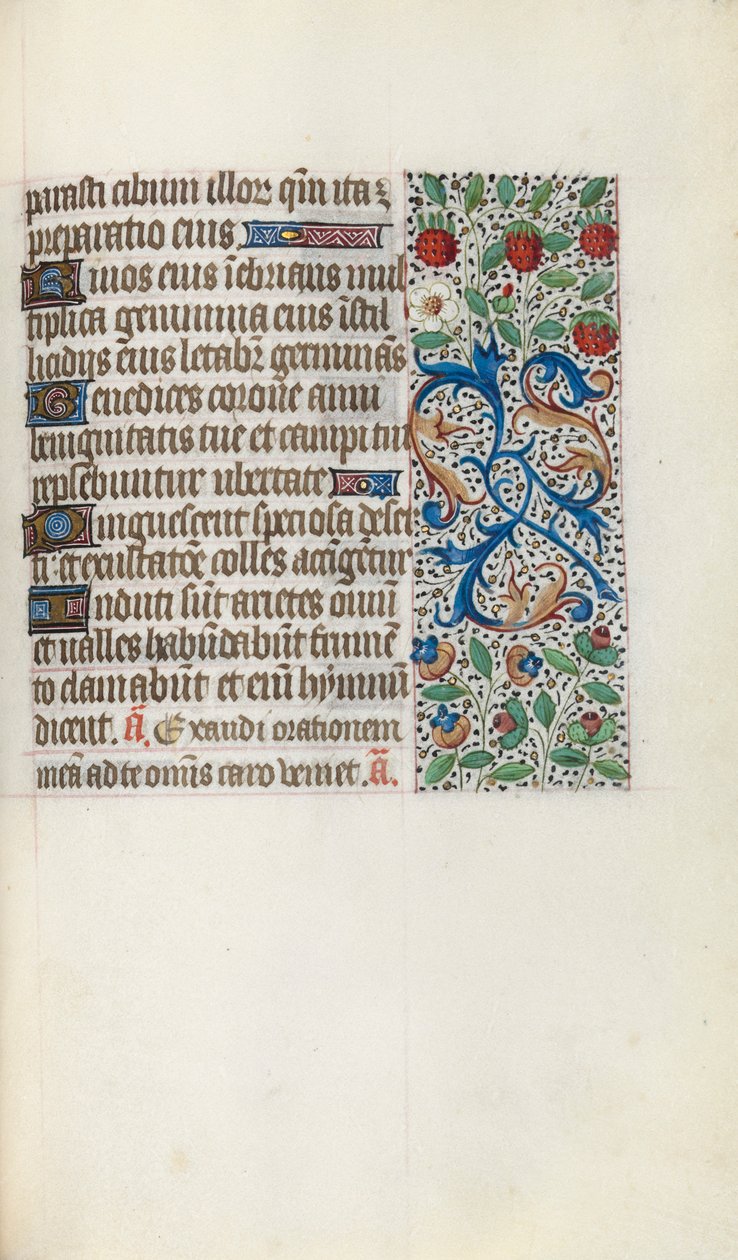 parasti cibum illoꝝ qm̄ ita ē
preparatio eius.
Riuos eius īebrians mul
tiplica genimina eius ī stil
licidijs eius letabr̄ germinās
Benedices corone anni
benignitatis tue et campi tui
replebuntur ubertate
Pinguescent speciosa deser
ti: et exultatōe colles accīgētur
Induti sūt arietes ouiū
et ualles habūdabūt frumē
to clamabūt et enī hymnū
dicent. ā. Exaudi orationem
meā ad te omīs caro veniet. ā.